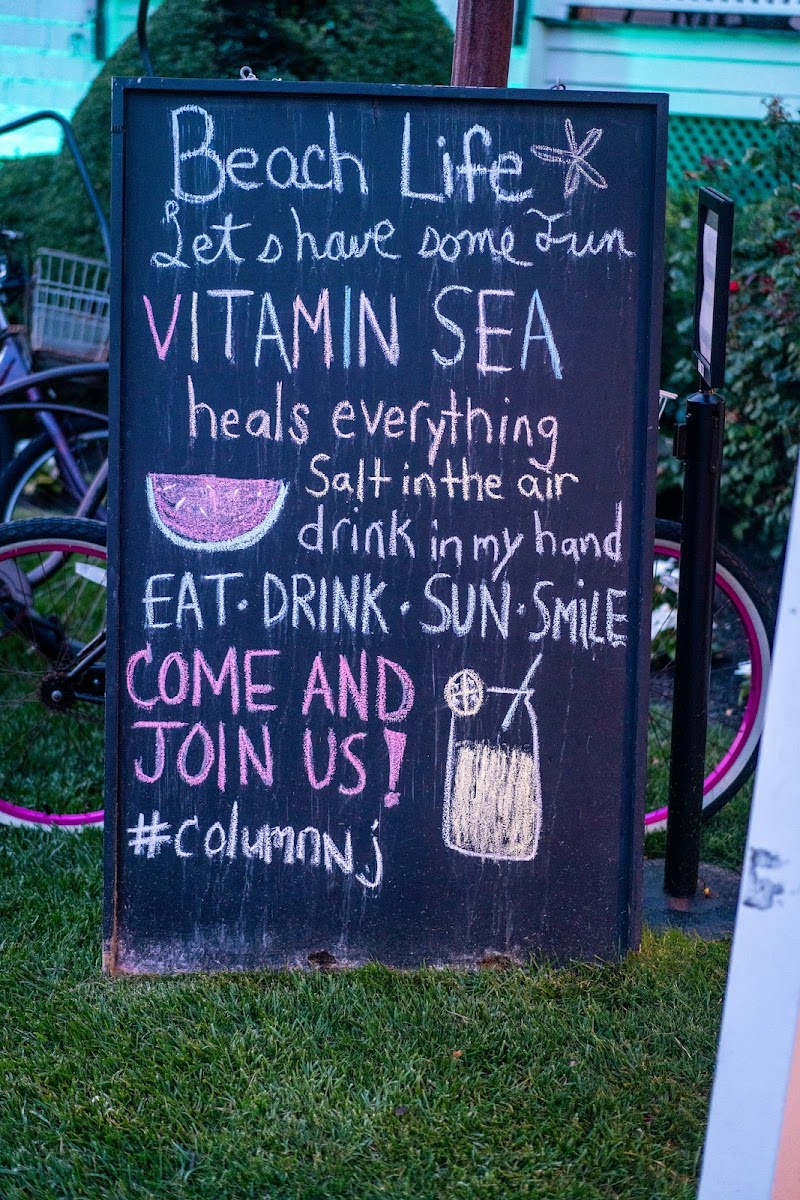 Beach Life
Let s have some Fun
VITAMIN SEA
heals everything
Salt in the air
drink in my hand
EAT · DRINK · SUN · SMiLE
COME AND
JOIN US!
#columnNj